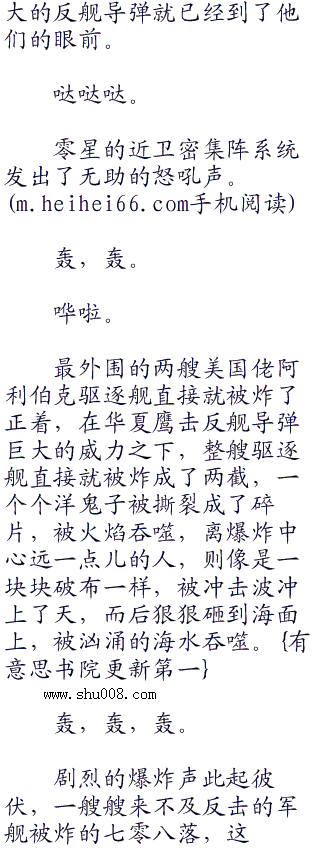 大的反舰导弹就已经到了他
们的眼前。
哒哒哒。
零星的近卫密集阵系统
发出了无助的怒吼声。
(m.heihei66.com手机阅读)
轰，轰。
哗啦。
最外围的两艘美国佬阿
利伯克驱逐舰直接就被炸了
正着，在华夏鹰击反舰导弹
巨大的威力之下，整艘驱逐
舰直接就被炸成了两截，一
个个洋鬼子被撕裂成了碎
片，被火焰吞噬，离爆炸中
心远一点儿的人，则像是一
块块破布一样，被冲击波冲
上了天，而后狠狠砸到海面
上，被汹涌的海水吞噬。{有
意思书院更新第一}
www.shu008.com
轰，轰，轰。
剧烈的爆炸声此起彼
伏，一艘艘来不及反击的军
舰被炸的七零八落，这